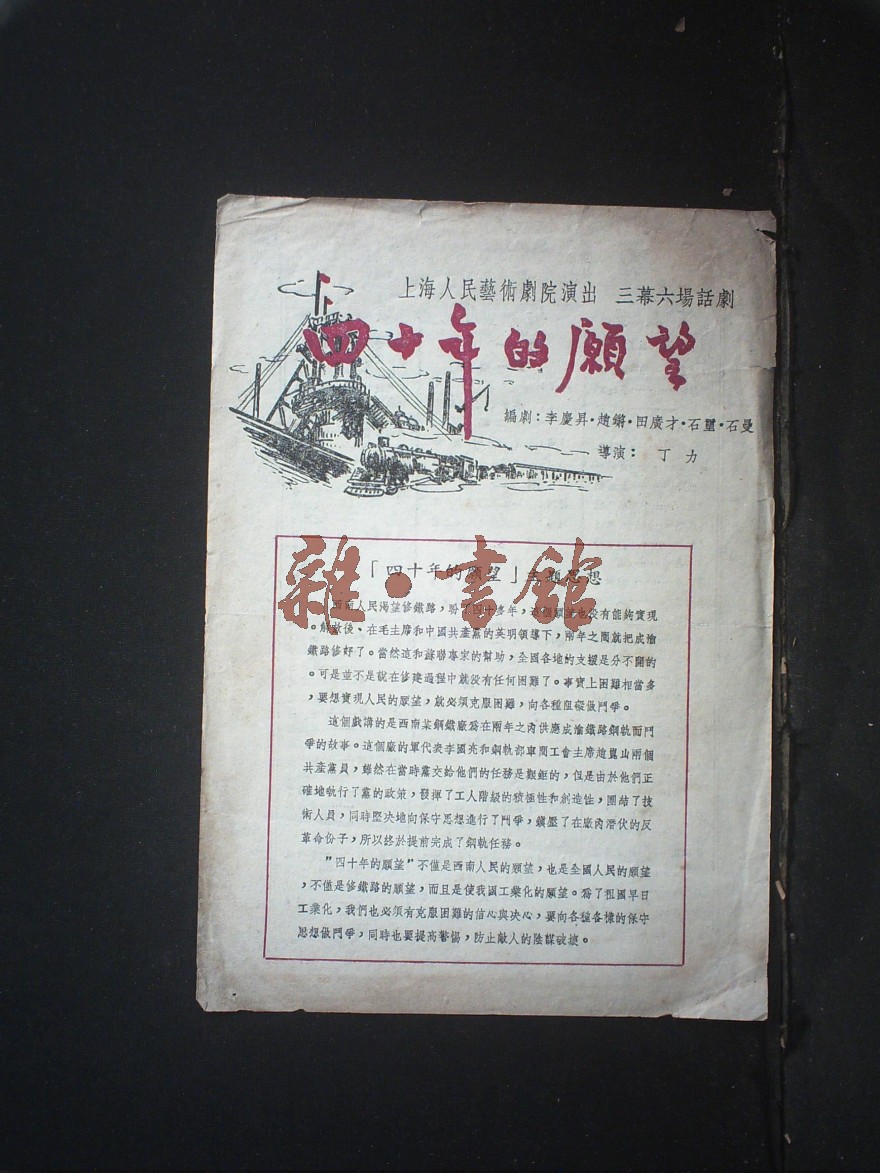 上海人民藝術劇院演出 三幕六場話劇
四十年的願望
編劇：李慶昇·趙鏘·田廣才·石璽·石曼
導演：丁力
雜·書館
「四十年的願望」主題思想
西南人民渴望修鐵路，盼了四十多年，這個願望也沒有能夠實現
。解放後、在毛主席和中國共產黨的英明領導下，兩年之間就把成渝
鐵路修好了。當然這和蘇聯專家的幫助，全國各地的支援是分不開的
。可是並不是說在修建過程中就沒有任何困難了。事實上困難相當多
，要想實現人民的願望，就必須克服困難，向各種阻礙做鬥爭。
這個戲講的是西南某鋼鐵廠為在兩年之內供應成渝鐵路鋼軌而鬥
爭的故事。這個廠的軍代表李國亮和鋼軌部車間工會主席趙崑山兩個
共產黨員，雖然在當時黨交給他們的任務是艱鉅的，但是由於他們正
確地執行了黨的政策，發揮了工人階級的積極性和創造性，團結了技
術人員，同時堅决地向保守思想進行了鬥爭，鎮壓了在廠內潜伏的反
革命份子，所以終於提前完成了鋼軌任務。
"四十年的願望"不僅是西南人民的願望，也是全國人民的願望
，不僅是修鐵路的願望，而且是使我國工業化的願望。為了祖國早日
工業化，我們也必須有克服困難的信心與决心，要向各種各樣的保守
思想做鬥爭，同時也要提高警惕，防止敵人的陰謀破壞。